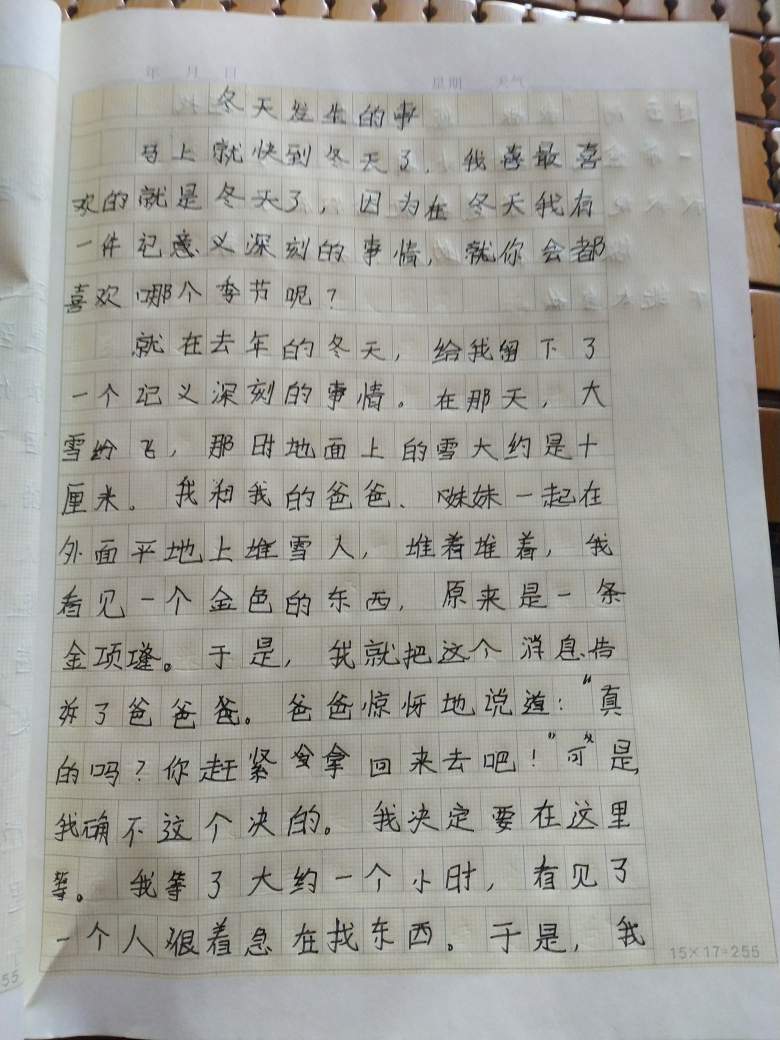 年 月 日 星期 天气
冬天发生的事
马上就快到冬天了，我喜最喜
欢的就是冬天了，因为在冬天我有
一件记意义深刻的事情，就你会都
喜欢哪个季节呢？
就在去年的冬天，给我留下了
一个记义深刻的事情。在那天，大
雪纷飞，那时地面上的雪大约是十
厘米。我和我的爸爸、妹妹一起在
外面平地上堆雪人，堆着堆着，我
看见一个金色的东西，原来是一条
金项。于是，我就把这个消息告
诉了爸爸爸。爸爸惊讶地说道："真
的吗？你赶紧拿回来去吧！"可是，
我确不这个决的。我决定要在这里
等。我等了大约一个小时，看见了
一个人很着急在找东西。于是，我
15×17=255
55